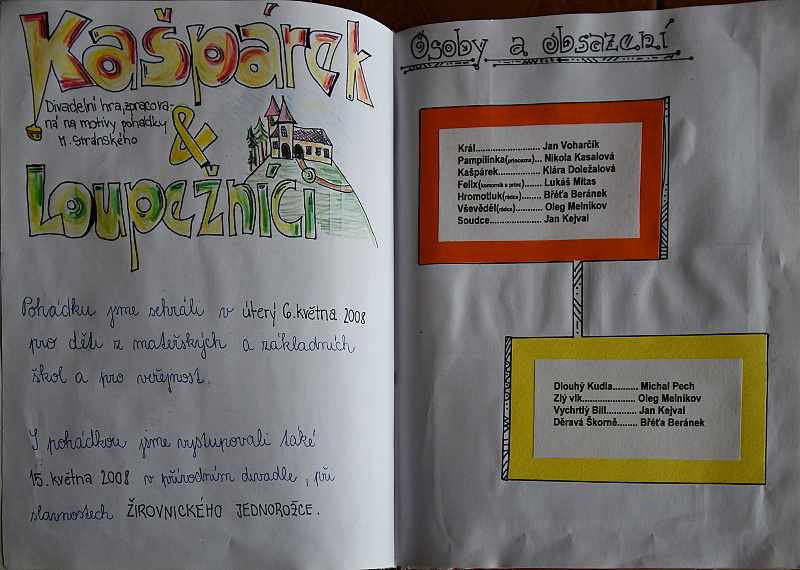 Kašpárek
Divadelní hra, zpracova-
ná na motivy pohádky
M. Stránského
&
Loupežníci
Pohádku jsme sehráli v úterý 6. května 2008
pro děti z mateřských a základních
škol a pro veřejnost.
S pohádkou jsme vystupovali také
15. května 2008 v přírodním divadle, při
slavnostech ŽIROVNICKÉHO JEDNOROŽCE.
Osoby a obsazení
Král.......................... Jan Voharčík
Pampilinka(princezna)... Nikola Kasalová
Kašpárek.................... Klára Doležalová
Felix(komorník a princ)....... Lukáš Mitas
Hromotluk(rádce)......... Břéťa Beránek
Vševěděl(rádce)........... Oleg Melnikov
Soudce..................... Jan Kejval
Dlouhý Kudla.......... Michal Pech
Zlý vlk..................... Oleg Melnikov
Vychrtlý Bill............ Jan Kejval
Děravá Škorně........ Břéťa Beránek